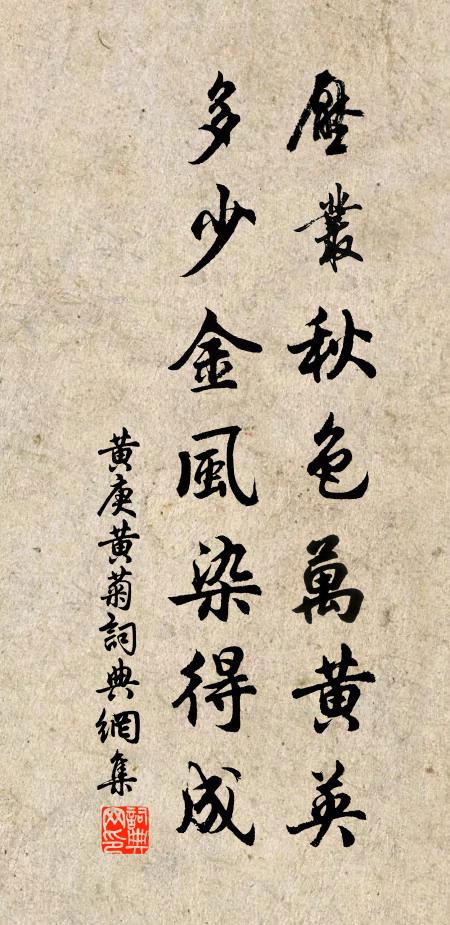 壓叢秋色萬黃英
多少金風染得成
黃庚黃菊詞典網集
詞典網印